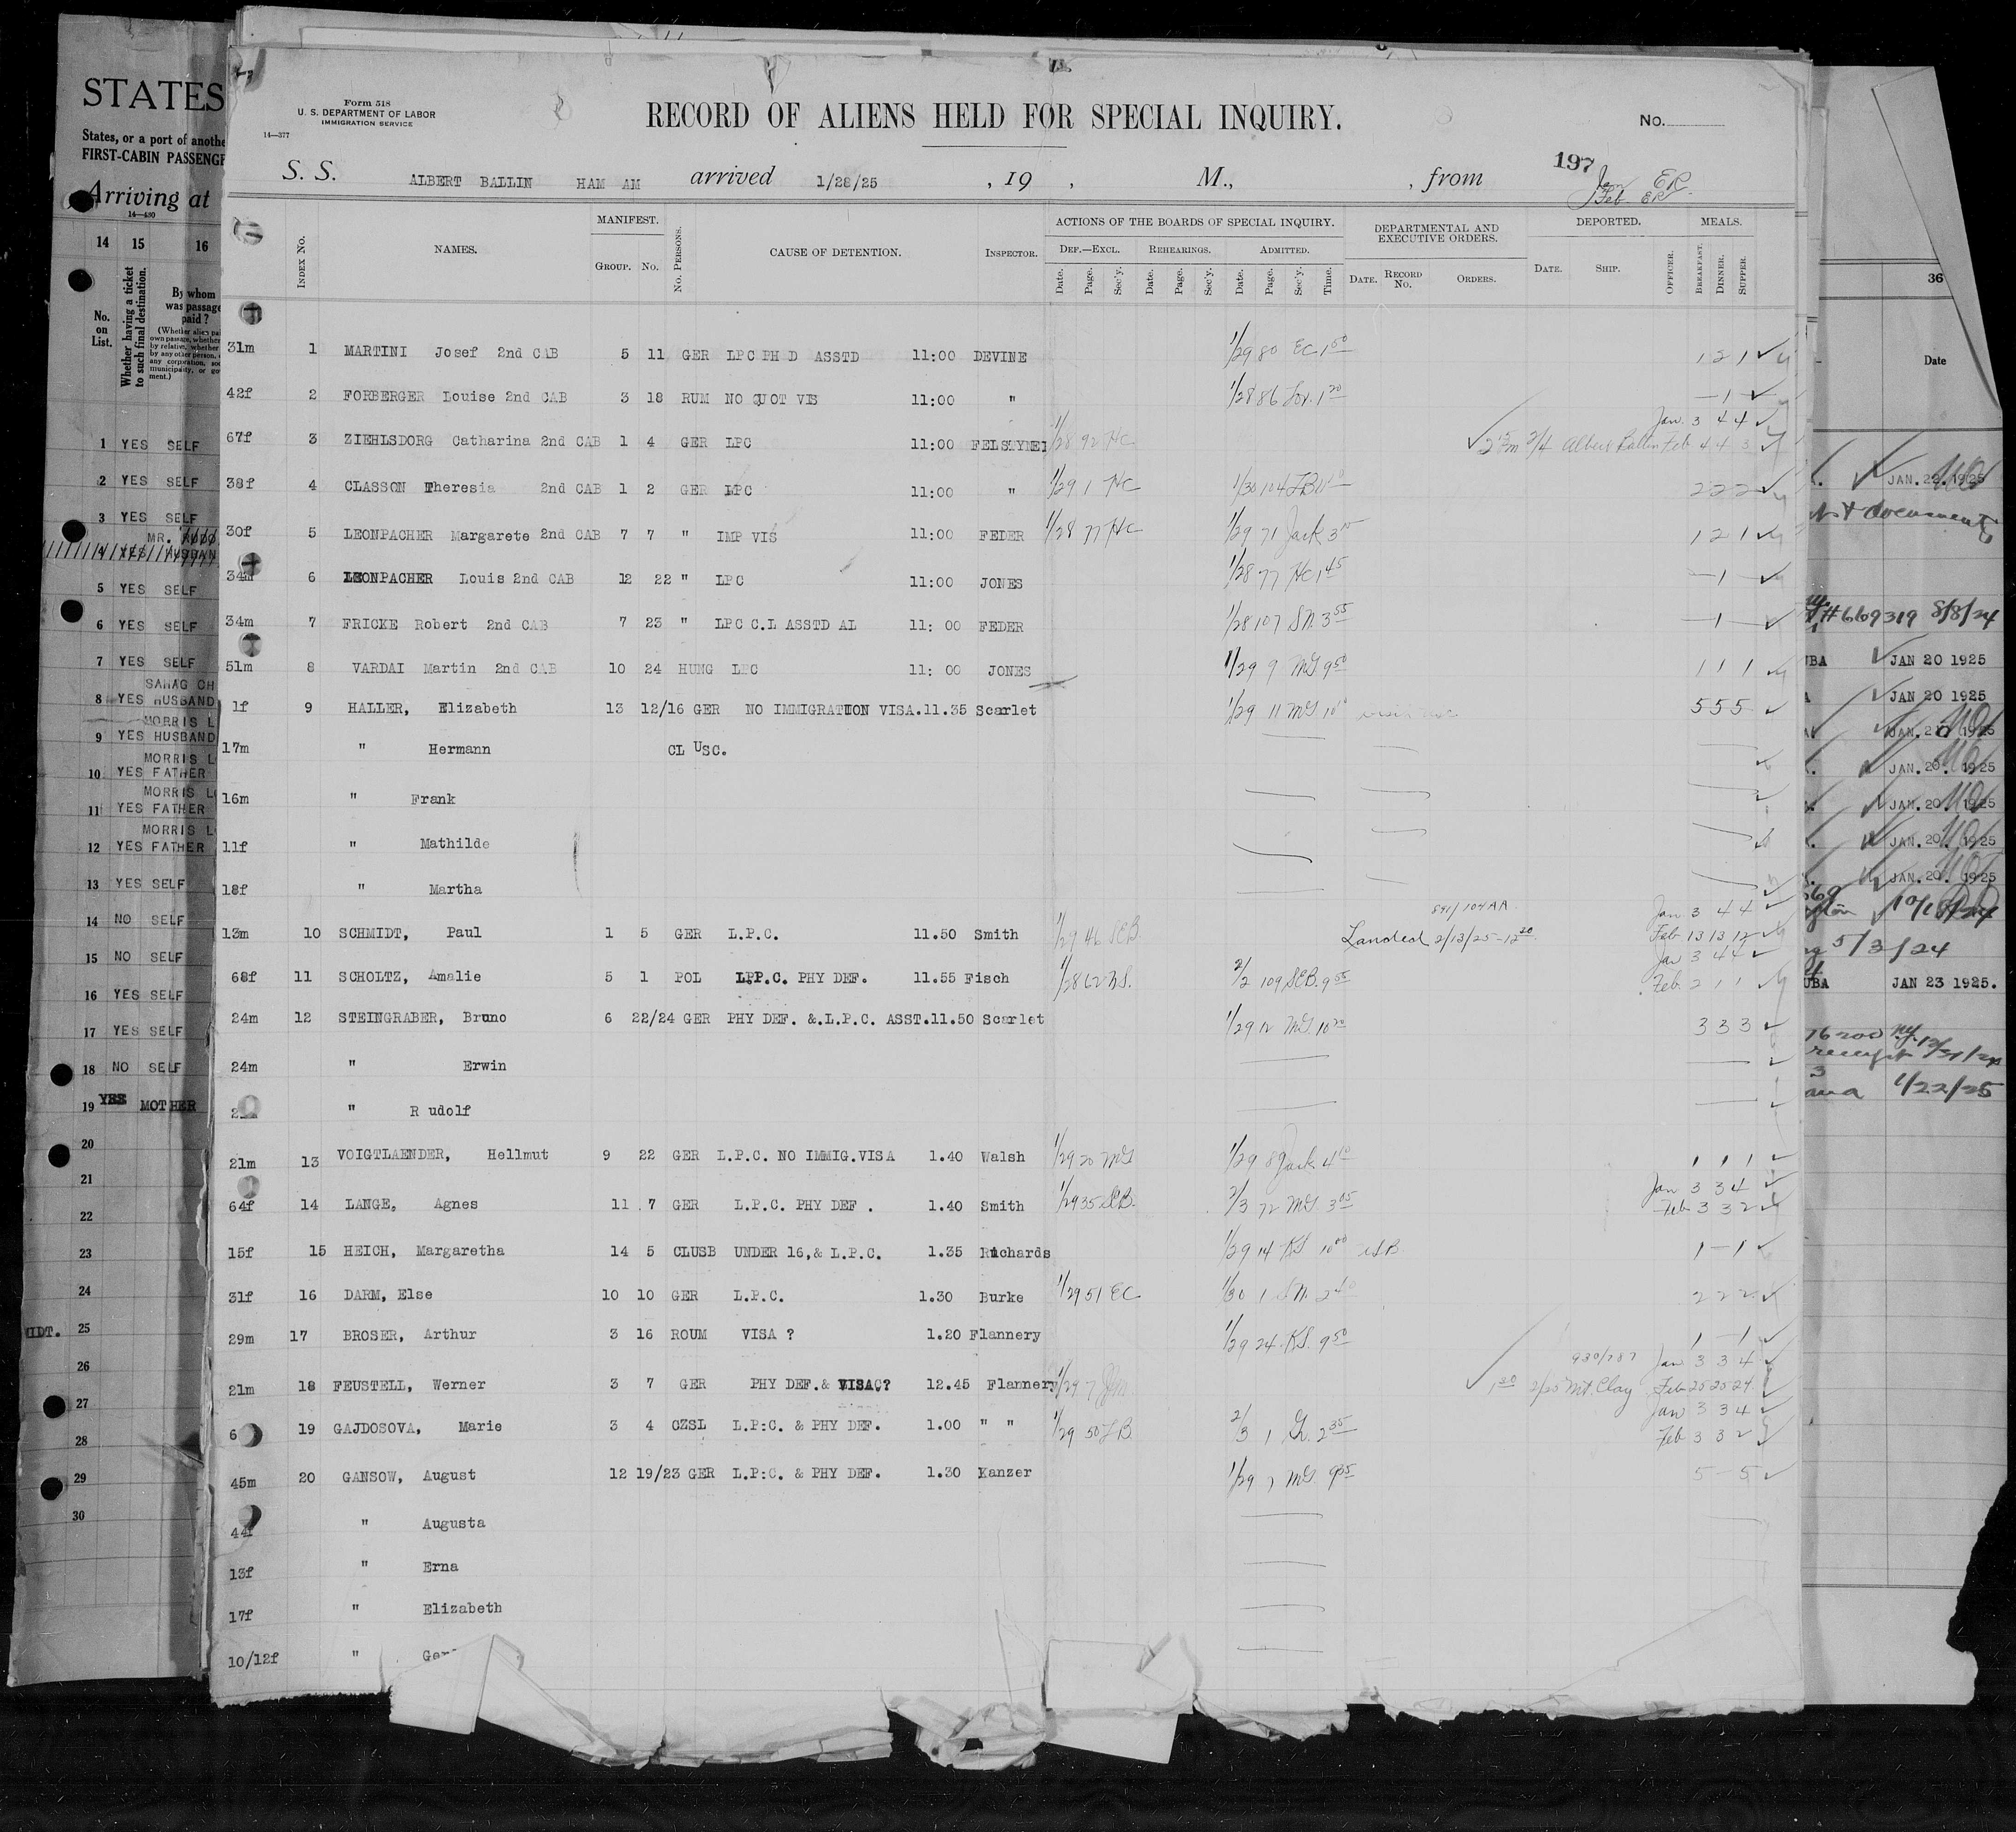 STATES
States, or a port of anothe
FIRST-CABIN PASSENGE
Arriving at
14—430
14 15 16
No. on List.
Whether having a ticket to such final destination.
By whom was passage paid?
1 YES SELF
2 YES SELF
3 YES SELF
MR.
4 YES HUSBAN
5 YES SELF
6 YES SELF
7 YES SELF
8 YES HUSBAND
MORRIS L
9 YES HUSBAND
MORRIS L
10 YES FATHER
MORRIS L
11 YES FATHER
MORRIS L
12 YES FATHER
13 YES SELF
14 NO SELF
15 NO SELF
16 YES SELF
17 YES SELF
18 NO SELF
19 YES MOTHER
20
21
22
23
24
25
26
27
28
29
30
Form 518
U. S. DEPARTMENT OF LABOR
IMMIGRATION SERVICE
14—377
RECORD OF ALIENS HELD FOR SPECIAL INQUIRY.
No.
197
S. S. ALBERT BALLIN HAM AM arrived 1/28/25 , 19 , M., , from
Jan ER
Feb ER
INDEX NO. NAMES. MANIFEST. GROUP. NO. NO. PERSONS. CAUSE OF DETENTION. INSPECTOR.
ACTIONS OF THE BOARDS OF SPECIAL INQUIRY.
DEF.—EXCL. REHEARINGS. ADMITTED.
Date. Page. Sec'y. Date. Page. Sec'y. Date. Page. Sec'y. Time.
DEPARTMENTAL AND EXECUTIVE ORDERS.
DATE. RECORD NO. ORDERS.
DEPORTED.
DATE. SHIP. OFFICER.
MEALS.
BREAKFAST. DINNER. SUPPER.
31m 1 MARTINI Josef 2nd CAB 5 11 GER LPC PH D ASSTD 11:00 DEVINE 1/29 80 EC 1 50 1 2 1
42f 2 FORBERGER Louise 2nd CAB 3 18 RUM NO QUOT VIS 11:00 " 1/28 86 1 20 — 1 —
Jan. 3 4 4
67f 3 ZIEHLSDORG Catharina 2nd CAB 1 4 GER LPC 11:00 1/28 92 HC 2/4 Albert Ballin Feb 4 4 3
38f 4 CLASSON Theresia 2nd CAB 1 2 GER LPC 11:00 " 1/29 1 HC 1/30 104 2 2 2
30f 5 LEONPACHER Margarete 2nd CAB 7 7 " IMP VIS 11:00 FEDER 1/28 77 HC 1/29 71 Jack 1 2 1
34m 6 LEONPACHER Louis 2nd CAB 12 22 " LPC 11:00 JONES 1/28 77 HC 1 45 — 1 —
34m 7 FRICKE Robert 2nd CAB 7 23 " LPC C.L ASSTD AL 11: 00 FEDER 1/28 107 SN 3 55 — 1 —
51m 8 VARDAI Martin 2nd CAB 10 24 HUNG LPC 11: 00 JONES 1/29 9 MG 9 50 1 1 1
1f 9 HALLER, Elizabeth 13 12/16 GER NO IMMIGRATION VISA. 11.35 Scarlet 1/29 11 MG 5 5 5
17m " Hermann CL USC.
16m " Frank
11f " Mathilde
18f " Martha
891/104AA Jan 3 4 4
13m 10 SCHMIDT, Paul 1 5 GER L.P.C. 11.50 Smith 1/29 46 SEB. Landed 2/13/25-12 20 Feb 13 13 12
Jan 3 4 4
68f 11 SCHOLTZ, Amalie 5 1 POL L.P.C. PHY DEF. 11.55 Fisch 1/28 62 2/2 109 SEB. 9 55 Feb. 2 1 1
24m 12 STEINGRABER, Bruno 6 22/24 GER PHY DEF. &.L.P.C. ASST. 11.50 Scarlet 1/29 12 MG 10 20 3 3 3
24m " Erwin
" R udolf
21m 13 VOIGTLAENDER, Hellmut 9 22 GER L.P.C. NO IMMIG.VISA 1.40 Walsh 1/29 20 MG 1/29 89 Jack 4 10 1 1 1
Jan 3 3 4
64f 14 LANGE, Agnes 11 7 GER L.P.C. PHY DEF . 1.40 Smith 1/29 35 SEB. 2/3 72 MG 3 05 Feb 3 3 2
15f 15 HEICH, Margaretha 14 5 CLUSB UNDER 16,& L.P.C. 1.35 Richards 1/29 14 KS 10 00 1 — 1
31f 16 DARM, Else 10 10 GER L.P.C. 1.30 Burke 1/29 51 EC 1/30 1 2 2 2
29m 17 BROSER, Arthur 3 16 ROUM VISA ? 1.20 Flannery 1/29 24 KS. 9 50 1 — 1
930/787 Jan 3 3 4
21m 18 FEUSTELL, Werner 3 7 GER PHY DEF.& VISA? 12.45 Flannery 1/29 7 1 30 2/25 Mt. Clay Feb 25 25 24
Jan 3 3 4
6 19 GAJDOSOVA, Marie 3 4 CZSL L.P.C. & PHY DEF. 1.00 " " 1/29 50 2/3 1 2 35 Feb 3 3 2
45m 20 GANSOW, August 12 19/23 GER L.P.C. & PHY DEF. 1.30 Kanzer 1/29 7 MG 9 35 5 — 5
44f " Augusta
13f " Erna
17f " Elizabeth
10/12f "
36
Date
JAN. 20. 1925
document
#669319 8/8/24
JAN 20 1925
JAN 20 1925
JAN. 20 1925
JAN. 20. 1925
JAN. 20. 1925
JAN. 20. 1925
JAN. 20. 1925
5/3/24
UBA JAN 23 1925.
receipt
1/22/25